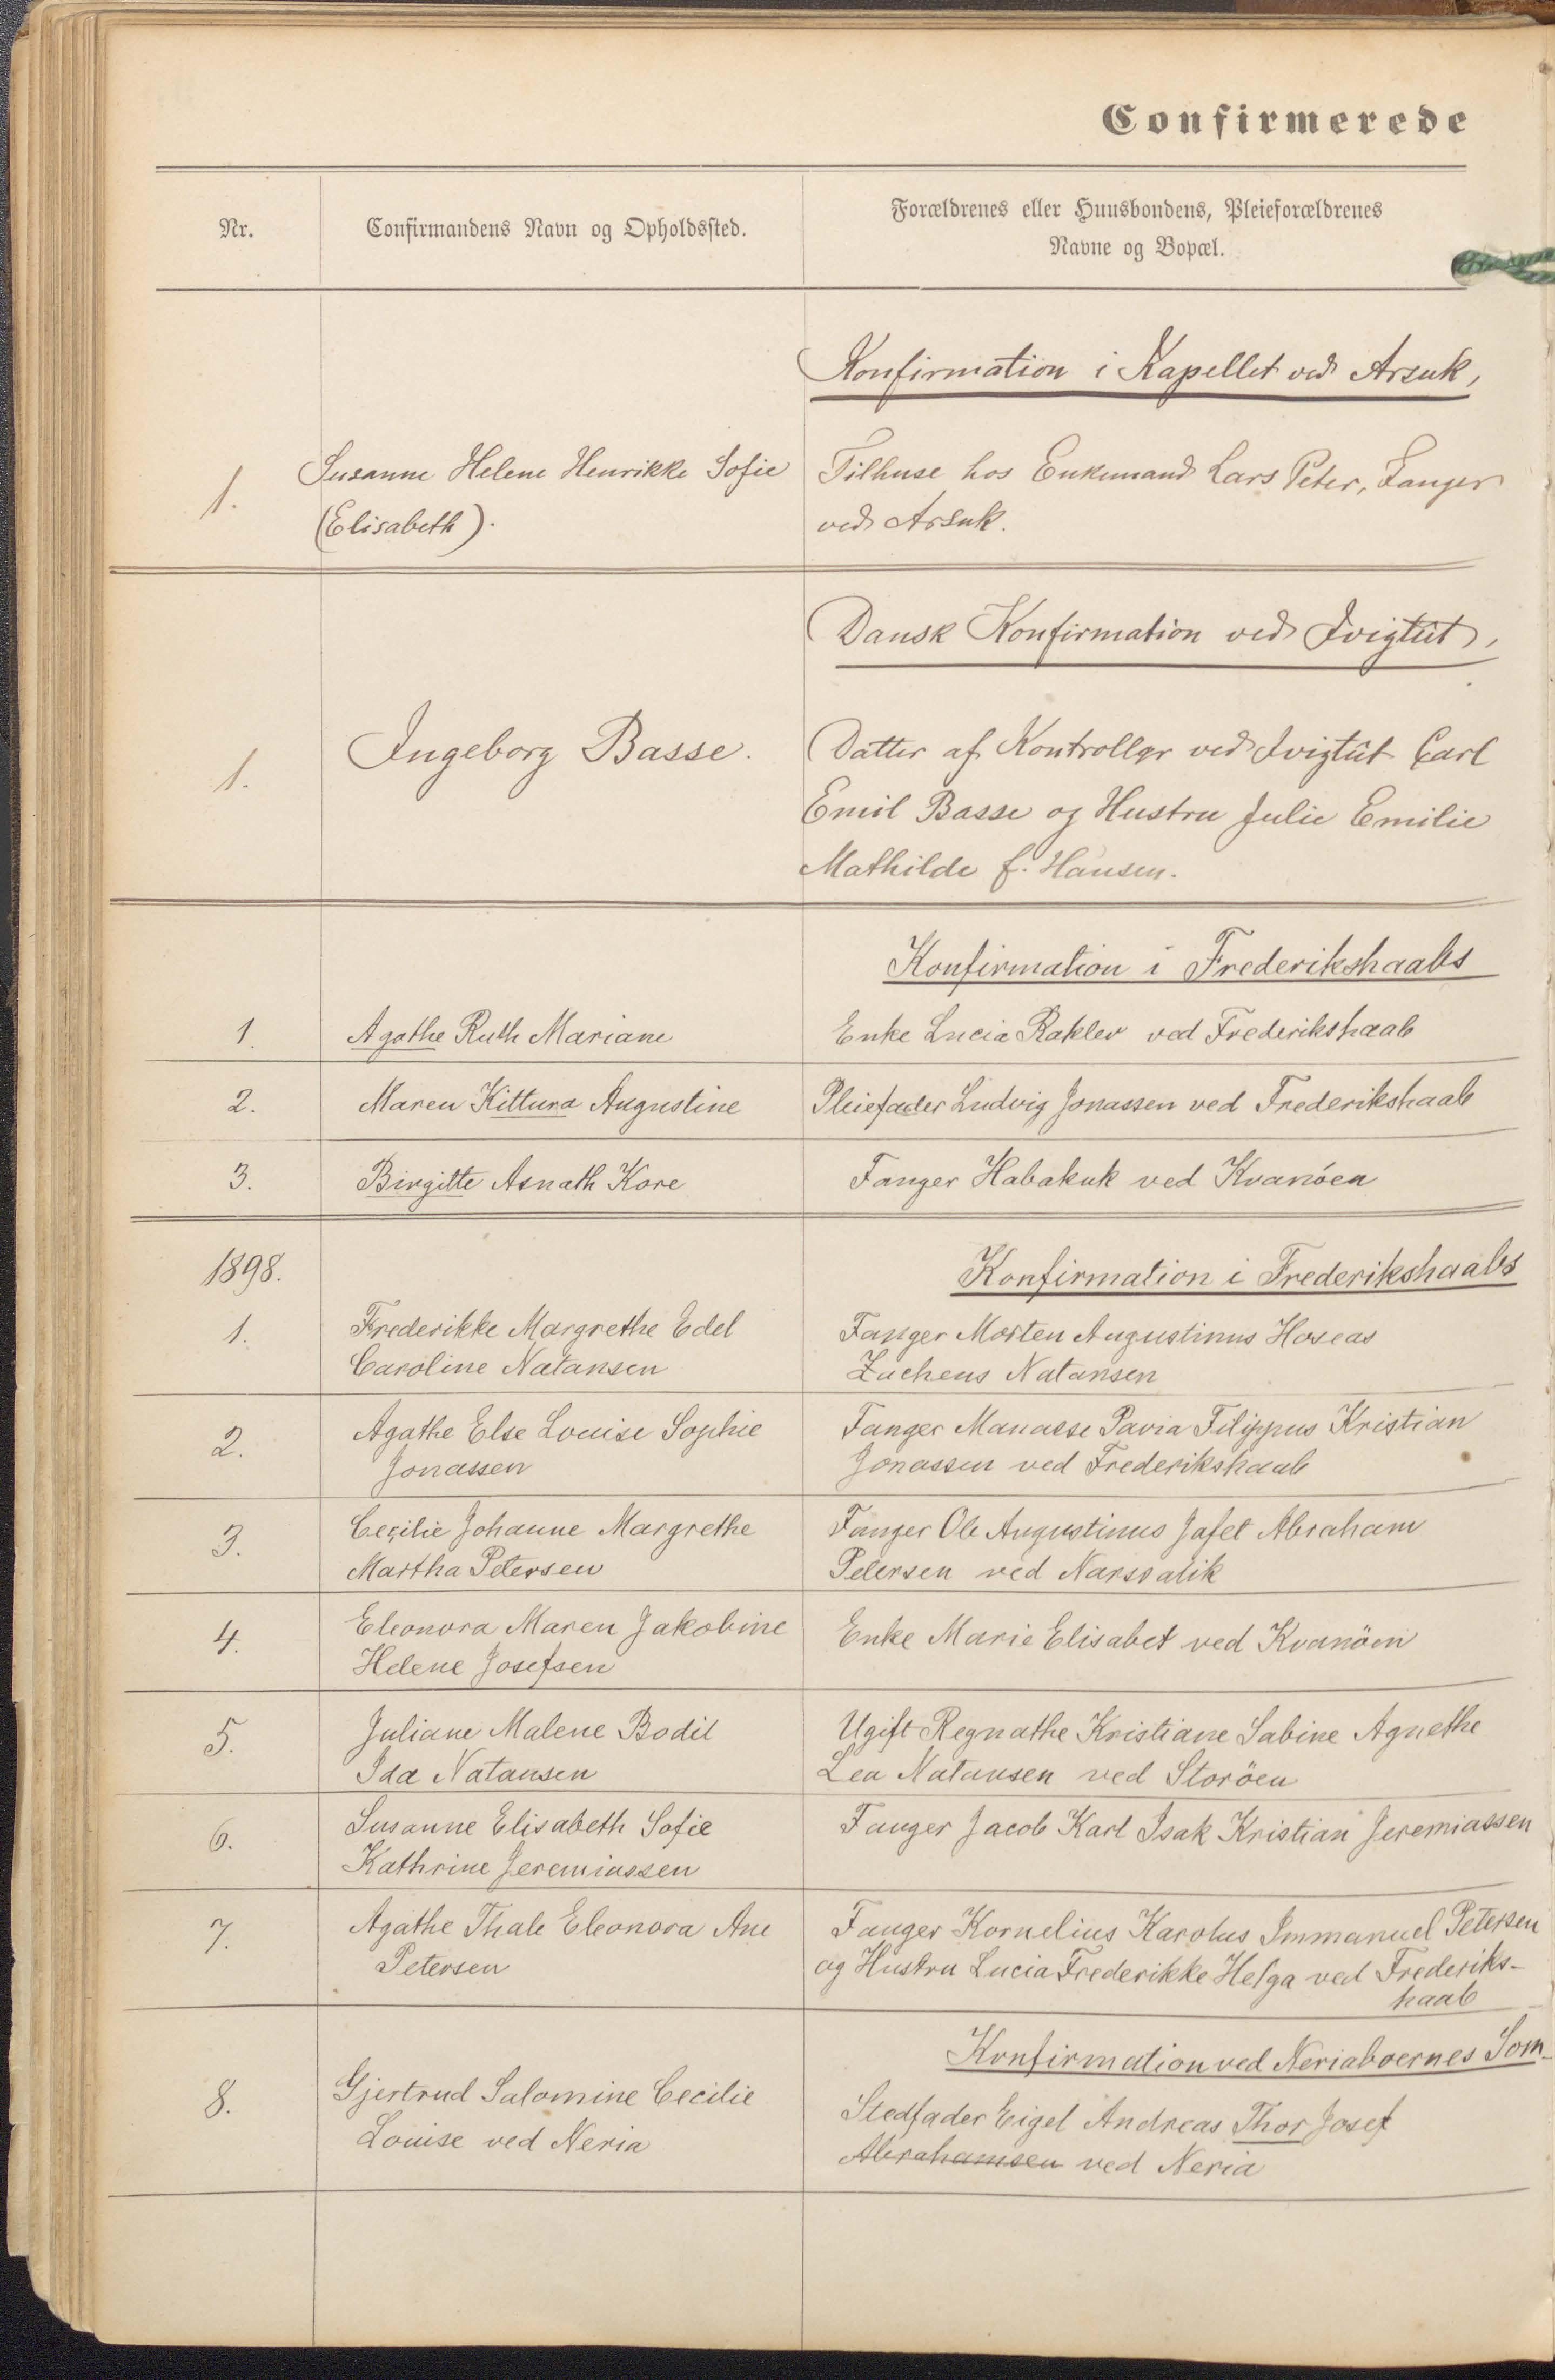 Confirmerede
Nr.
Confirmandens Navn og Opholdssted.
Forældrenes eller Huusbondens, Pleieforældrenes
Navne og Bopæl.
Konfirmation i Kapellet ved Arsuk,
1.
Susanne Helene Henrikke Sofie
(Elisabeth).
Tilhuse hos Enkemand Lars Peter, Fanger
ved Arsuk.
Dansk Konfirmation ved Ivigtût,
1.
Ingeborg Basse.
Datter af Kontrollør ved Ivigtût Carl
Emil Basse og Hustru Julie Emilie
Mathilde f. Hansen.
Konfirmation i Frederikshaabs
1.
Agathe Ruth Mariane
Enke Lucia Raklev ved Frederikshaab
2.
Maren Kittura Augustine
Pleiefader Ludvig Jonassen ved Frederikshaab
3.
Birgitte Asnath Kore
Fanger Habakuk ved Kvanöen
1898.
Konfirmation i Frederikshaabs
1.
Frederikke Margrethe Edel
Caroline Natansen
Fanger Morten Augustinus Hoseas
Zacheus Natansen
2.
Agathe Else Louise Sophie
Jonassen
Fanger Manasse Pavia Filippus Kristian
Jonassen ved Frederikshaab
3.
Cecilie Johanne Margrethe
Martha Petersen
Fanger Ole Augustinus Jafet Abraham
Petersen ved Narssalik
4.
Eleonora Maren Jakobine
Helene Josefsen
Enke Marie Elisabet ved Kvanöen
5.
Juliane Malene Bodil
Ida Natansen
Ugift Regnathe Kristiane Sabine Agnethe
Lea Natansen ved Storöen
6.
Susanne Elisabeth Sofie
Kathrine Jeremiassen
Fanger Jacob Karl Isak Kristian Jeremiassen
7.
Agathe Thale Eleonora Ane
Petersen
Fanger Kornelius Karolus Immanuel Petersen
og Hustru Lucia Frederikke Helga ved Frederiks-
haab
Konfirmation ved Neriaboernes Som-
8.
Gjertrud Salomine Cecilie
Louise ved Neria
Stedfader Eigel Andreas Thor Josef
Abrahamsen ved Neria